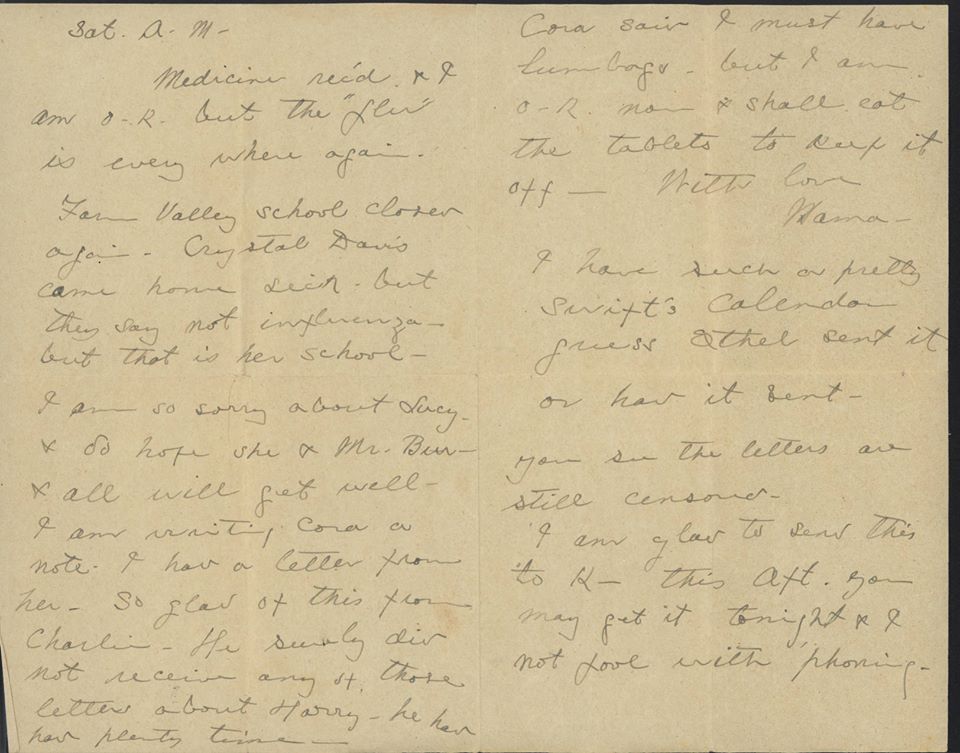 Sat. A. M-
Medicine rec'd. & I
am O-K. but the "flu"
is every where again.
Farm Valley school closed
again - Crystal Davis
came home sick - but
they say not influenza -
but that is her school -
I am so sorry about Lucy -
& do hope she & Mr. Burr -
& all will get well -
I am writing Cora a
note. I had a letter from
her - So glad of this from
Charlie - He surely did
not receive any of those
letters about Harry - he had
had plenty time -
Cora said I must have
lumbago - but I am
O-K. now & shall eat
the tablets to keep it
off - With love
Mama -
I have such a pretty
Swift's Calendar
guess Ethel sent it
or had it sent -
you see the letters are
still censored -
I am glad to send this
to K - this Aft. you
may get it tonight & I
not fool with 'phoning -